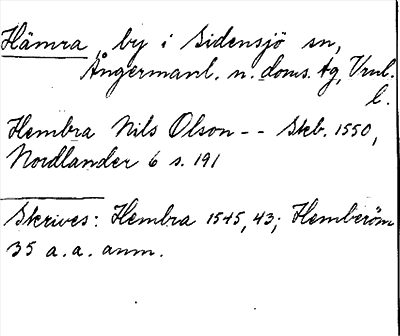 Hämra, by i Sidensjö sn,
Ångermanl. n. doms. tg, Vnl.
l.
Hembra Nils Olson -- Skb. 1550,
Nordlander 6 s. 191
Skrives: Hembra 1545, 43; Hemberöm
35 a. a. anm.